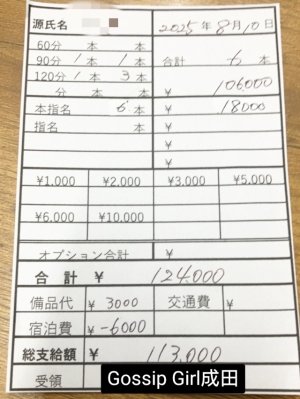 源氏名 2025年8月10日
60分 本 本
90分 1本 1本 合計 6本
120分 1本 3本 ¥ 106000
分 本 本
本指名 6本 ¥ 18000
指名 本 ¥
¥
¥
¥1,000 ¥2,000 ¥3,000 ¥5,000
¥6,000 ¥10,000
オプション合計 ¥
合計 ¥ 124,000
備品代 ¥ 3000 交通費 ¥
宿泊費 ¥ -6000
総支給額 ¥ 113,000
受領
Gossip Girl成田